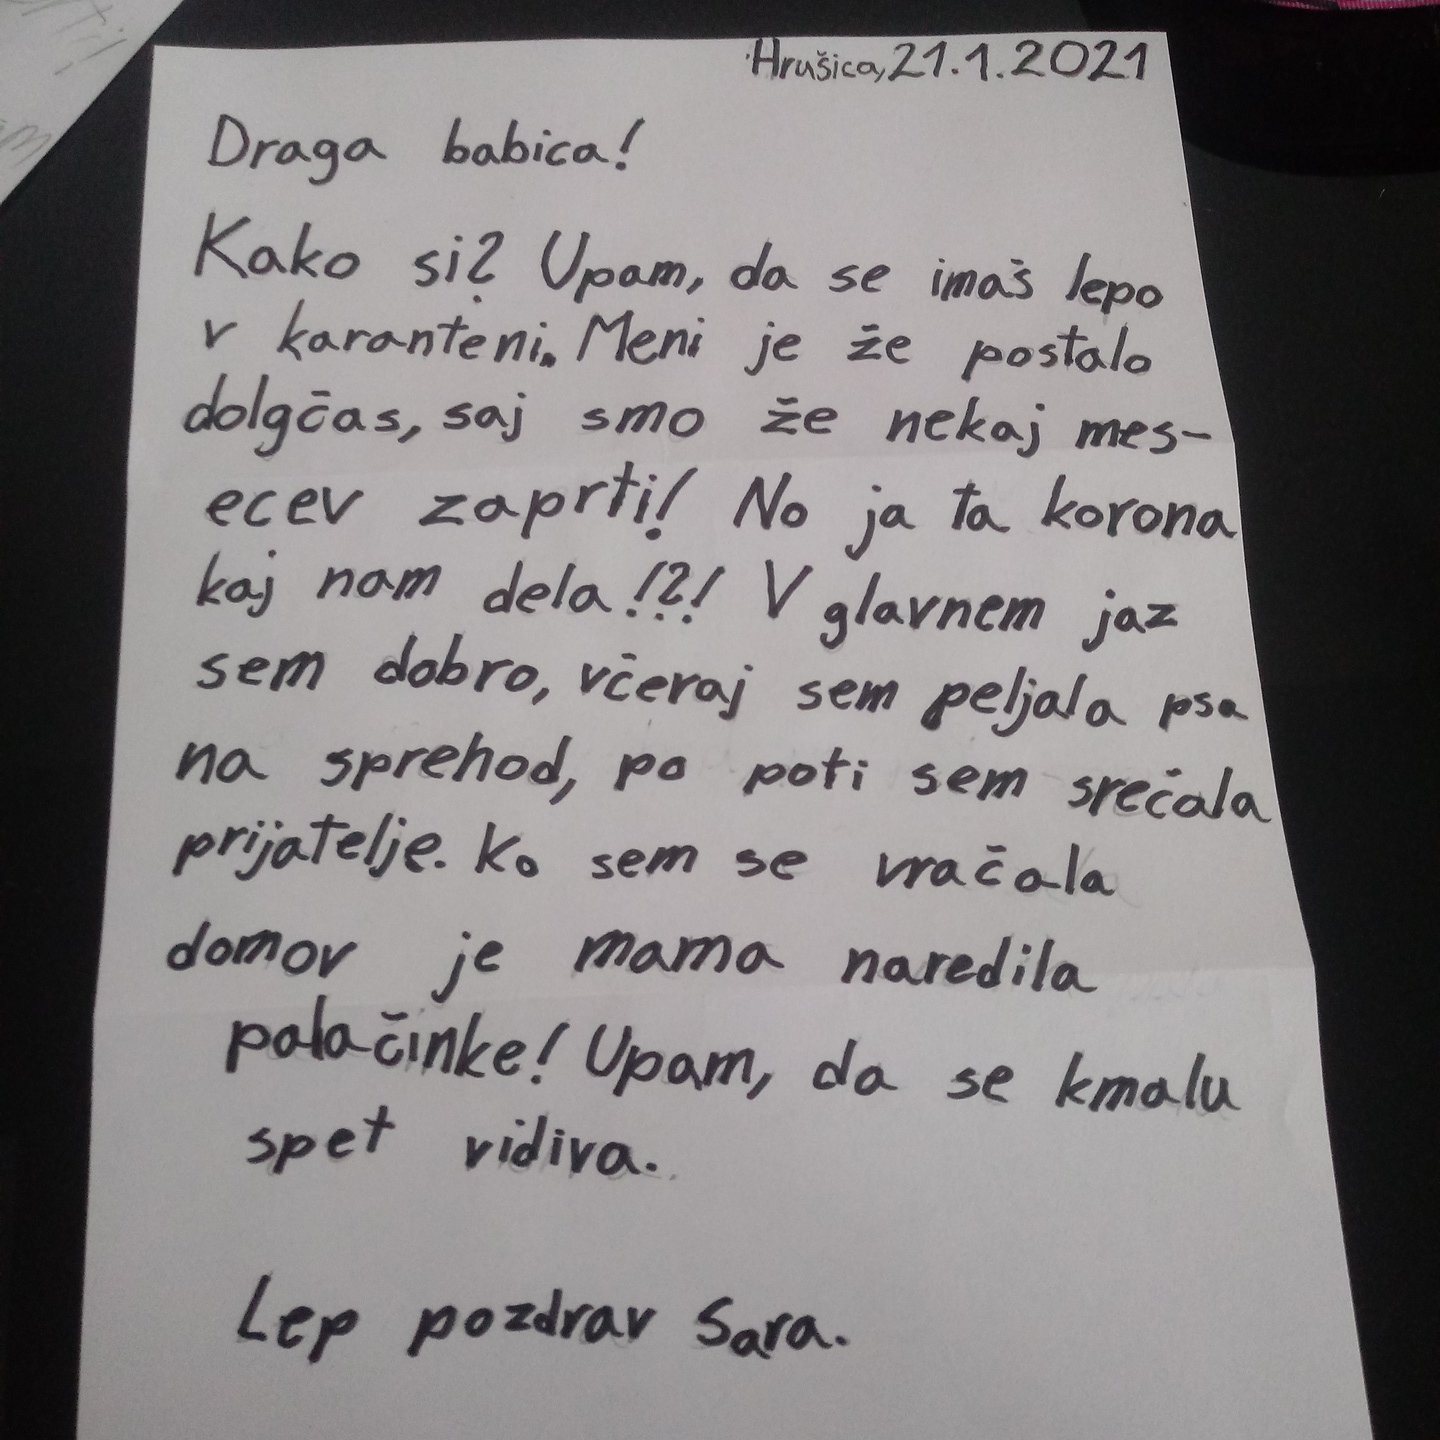 Hrušica, 21.1.2021
Draga babica!
Kako si? Upam, da se imaš lepo
v karanteni. Meni je že postalo
dolgčas, saj smo že nekaj mes-
ecev zaprti! No ja ta korona
kaj nam dela!?! V glavnem jaz
sem dobro, včeraj sem peljala psa
na sprehod, po poti sem srečala
prijatelje. Ko sem se vračala
domov je mama naredila
palačinke! Upam, da se kmalu
spet vidiva.
Lep pozdrav Sara.